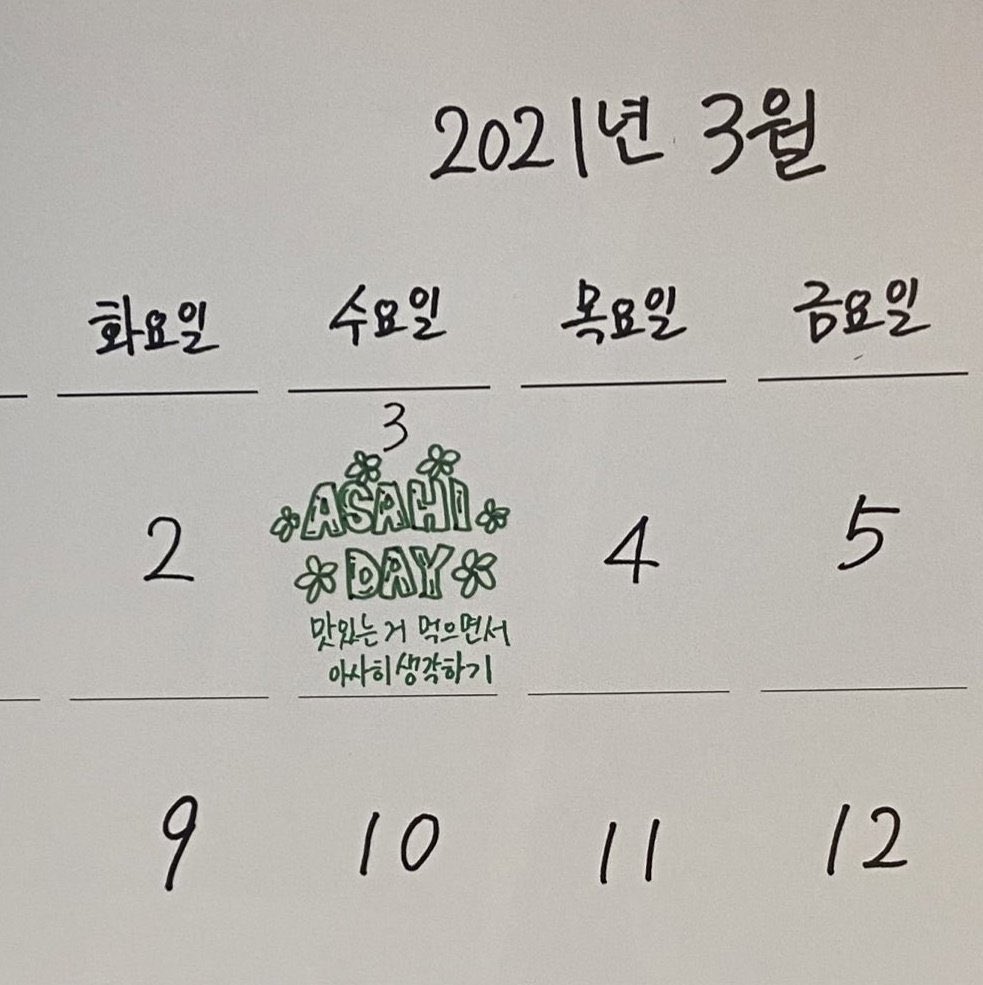 2021년 3월
화요일 수요일 목요일 금요일
2 3 4 5
ASAHI
DAY
맛있는 거 먹으면서
아사히 생각하기
9 10 11 12